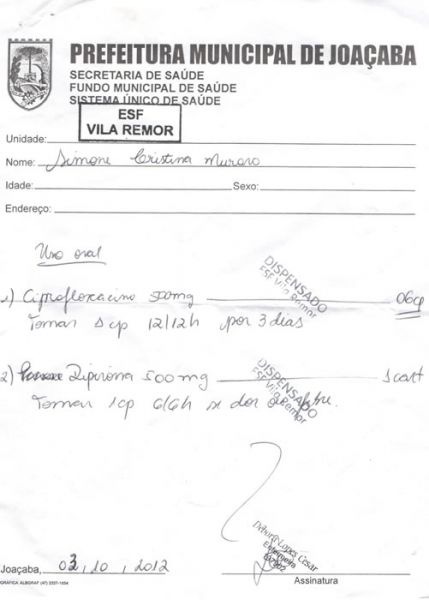 PREFEITURA MUNICIPAL DE JOAÇABA
SECRETARIA DE SAÚDE
FUNDO MUNICIPAL DE SAÚDE
SISTEMA ÚNICO DE SAÚDE
ESF
VILA REMOR
Unidade:
Nome: Simone Cristina Muraro
Idade: Sexo:
Endereço:
Uso oral
1) Ciprofloxacino 500mg 06cp
DISPENSADO
ESF Vila Remor
Tomar 1 cp 12/12h por 3 dias
2) Dipirona 500mg 1cart
DISPENSADO
ESF Vila Remor
Tomar 1cp 6/6h se dor ou febre.
Lopes Cesar
Enfermeiro
Joaçaba, 03, 10, 2012
Assinatura